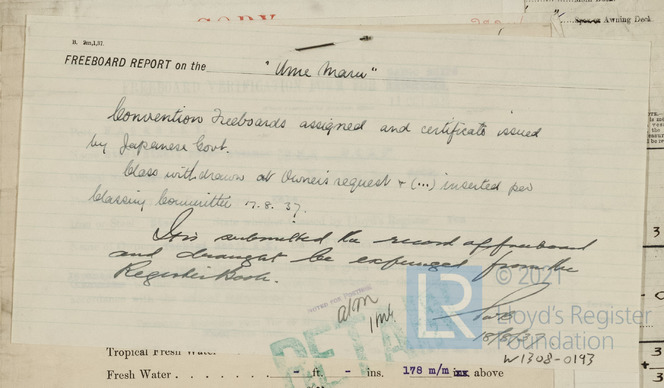 COPY
Awning Deck.
B. 2m,1,37.
FREEBOARD REPORT on the "Ume Maru"
Convention Freeboards assigned and certificate issued
by Japanese Govt.
Class withdrawn at Owner's request & (...) inserted per
Classing Committee 17.8.37.
It is submitted the record of freeboard
and draught be expunged from the
Register Book.
LR
© 2021
Lloyd's Register
Foundation
18/8/37
W1308-0193
Tropical Fresh Water
Fresh Water - ft. - ins. 178 m/m above